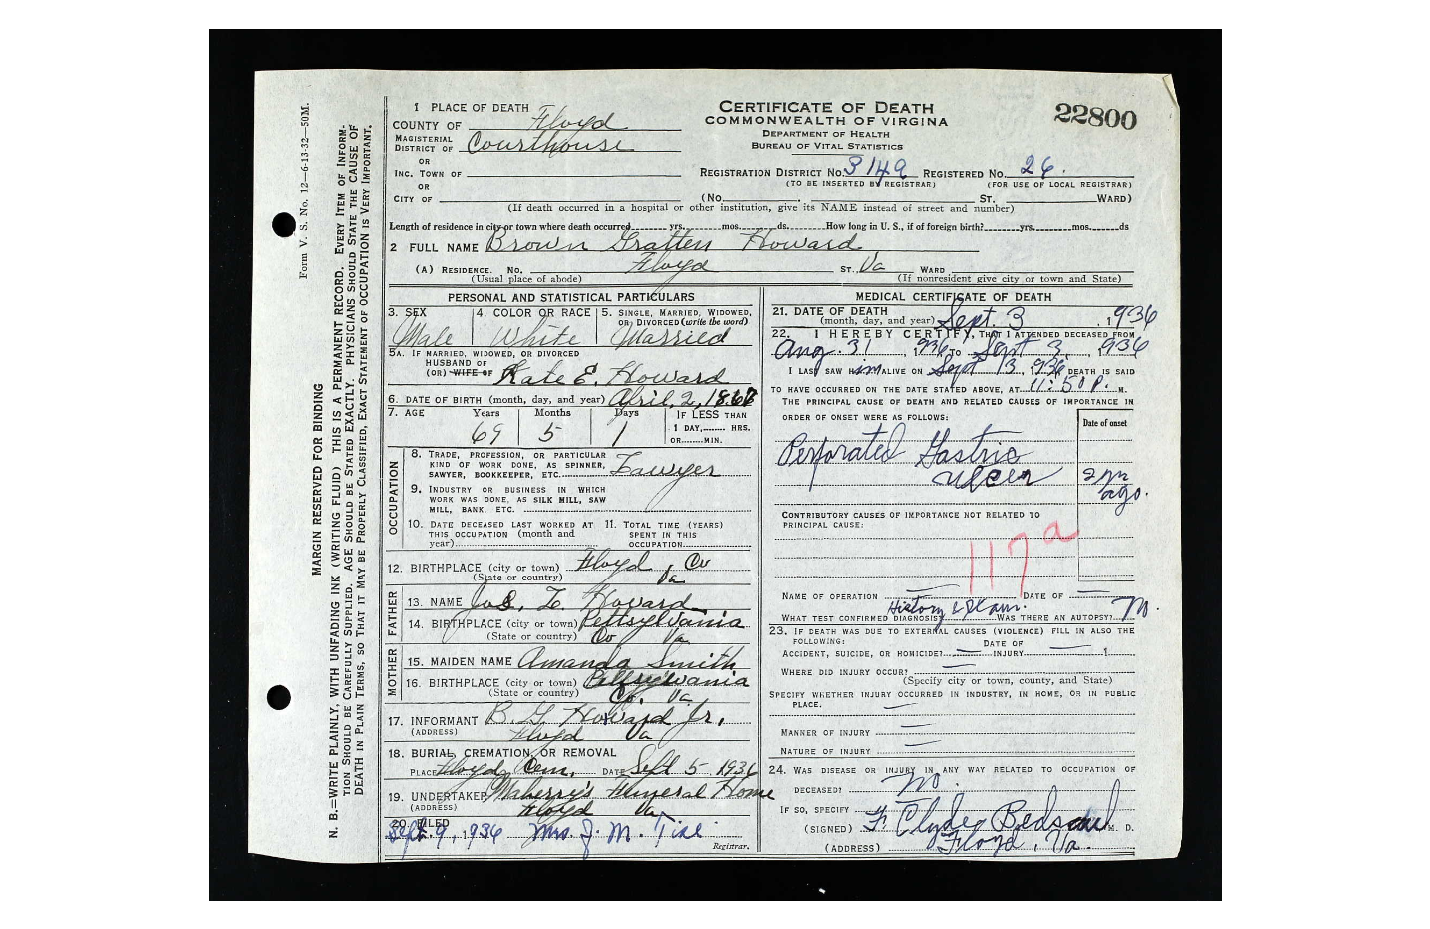 Form V. S. No. 12—6-13-32—50M.
MARGIN RESERVED FOR BINDING
N. B.—WRITE PLAINLY, WITH UNFADING INK (WRITING FLUID). THIS IS A PERMANENT RECORD. EVERY ITEM OF INFORM-
TION SHOULD BE CAREFULLY SUPPLIED. AGE SHOULD BE STATED EXACTLY. PHYSICIANS SHOULD STATE THE CAUSE OF
DEATH IN PLAIN TERMS, SO THAT IT MAY BE PROPERLY CLASSIFIED. EXACT STATEMENT OF OCCUPATION IS VERY IMPORTANT.
1 PLACE OF DEATH
COUNTY OF Floyd
MAGISTERIAL DISTRICT OF Courthouse
OR
INC. TOWN OF
OR
CITY OF
CERTIFICATE OF DEATH
COMMONWEALTH OF VIRGINIA
DEPARTMENT OF HEALTH
BUREAU OF VITAL STATISTICS
22800
REGISTRATION DISTRICT No. 3149 REGISTERED No. 26.
(TO BE INSERTED BY REGISTRAR) (FOR USE OF LOCAL REGISTRAR)
(No. ST. WARD)
(If death occurred in a hospital or other institution, give its NAME instead of street and number)
Length of residence in city or town where death occurred yrs. mos. ds. How long in U. S., if of foreign birth? yrs. mos. ds
2 FULL NAME Brown Gratten Howard
(A) RESIDENCE. No. Floyd ST. Va WARD
(Usual place of abode) (If nonresident give city or town and State)
PERSONAL AND STATISTICAL PARTICULARS
3. SEX 4 COLOR OR RACE 5. SINGLE, MARRIED, WIDOWED, OR DIVORCED (write the word)
Male White Married
5A. IF MARRIED, WIDOWED, OR DIVORCED
HUSBAND OF
(OR) WIFE OF Kate E. Howard
6. DATE OF BIRTH (month, day, and year) April, 2, 1867
7. AGE Years Months Days IF LESS THAN
1 DAY, HRS.
OR MIN.
69 5 1
OCCUPATION
8. TRADE, PROFESSION, OR PARTICULAR
KIND OF WORK DONE, AS SPINNER,
SAWYER, BOOKKEEPER, ETC. Lawyer
9. INDUSTRY OR BUSINESS IN WHICH
WORK WAS DONE, AS SILK MILL, SAW
MILL, BANK, ETC.
10. DATE DECEASED LAST WORKED AT
THIS OCCUPATION (month and
year)
11. TOTAL TIME (YEARS)
SPENT IN THIS
OCCUPATION
12. BIRTHPLACE (city or town) Floyd Co
(State or country) Va
FATHER
13. NAME Jos. L. Howard
14. BIRTHPLACE (city or town) Pettsylvania
(State or country) Co Va
MOTHER
15. MAIDEN NAME Amanda Smith
16. BIRTHPLACE (city or town) Pettsylvania
(State or country) Co. Va.
17. INFORMANT B. G. Howard Jr,
(ADDRESS) Floyd Va
18. BURIAL, CREMATION, OR REMOVAL
PLACE Floyd Cem, DATE Sept 5 1936
19. UNDERTAKER Maberry's Funeral Home
(ADDRESS) Floyd Va
20. FILED
Sept. 9, 1936 Mrs. J. M.
Registrar.
MEDICAL CERTIFICATE OF DEATH
21. DATE OF DEATH
(month, day, and year) Sept. 3, 1936
22. I HEREBY CERTIFY, THAT I ATTENDED DECEASED FROM
Aug 31, 1936 TO Sept 3, 1936
I LAST SAW him ALIVE ON Sept 3, 1936 DEATH IS SAID
TO HAVE OCCURRED ON THE DATE STATED ABOVE, AT 11:50 P. M.
THE PRINCIPAL CAUSE OF DEATH AND RELATED CAUSES OF IMPORTANCE IN
ORDER OF ONSET WERE AS FOLLOWS:
Date of onset
Perforated Gastric
Ulcer 2 yr
ago.
CONTRIBUTORY CAUSES OF IMPORTANCE NOT RELATED TO
PRINCIPAL CAUSE:
117a
NAME OF OPERATION — DATE OF —
WHAT TEST CONFIRMED DIAGNOSIS History & Exam. WAS THERE AN AUTOPSY? No.
23. IF DEATH WAS DUE TO EXTERNAL CAUSES (VIOLENCE) FILL IN ALSO THE
FOLLOWING:
ACCIDENT, SUICIDE, OR HOMICIDE? — DATE OF INJURY — 1
WHERE DID INJURY OCCUR? —
(Specify city or town, county, and State)
SPECIFY WHETHER INJURY OCCURRED IN INDUSTRY, IN HOME, OR IN PUBLIC
PLACE. —
MANNER OF INJURY —
NATURE OF INJURY —
24. WAS DISEASE OR INJURY IN ANY WAY RELATED TO OCCUPATION OF
DECEASED? No.
IF SO, SPECIFY
(SIGNED) F. Clyde Bedsaul M. D.
(ADDRESS) Floyd, Va.